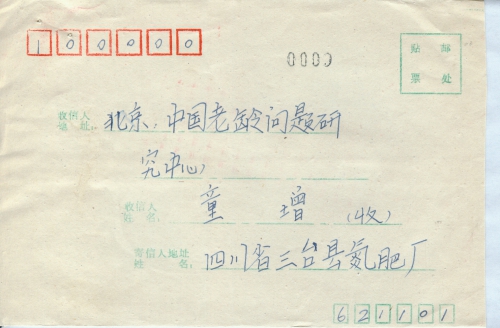 100000
0000
贴 邮
票 处
收信人
地 址: 北京:中国老龄问题研
究中心
收信人
姓 名: 童 增 (收)
寄信人地址
姓 名: 四川省三台县氮肥厂
621101